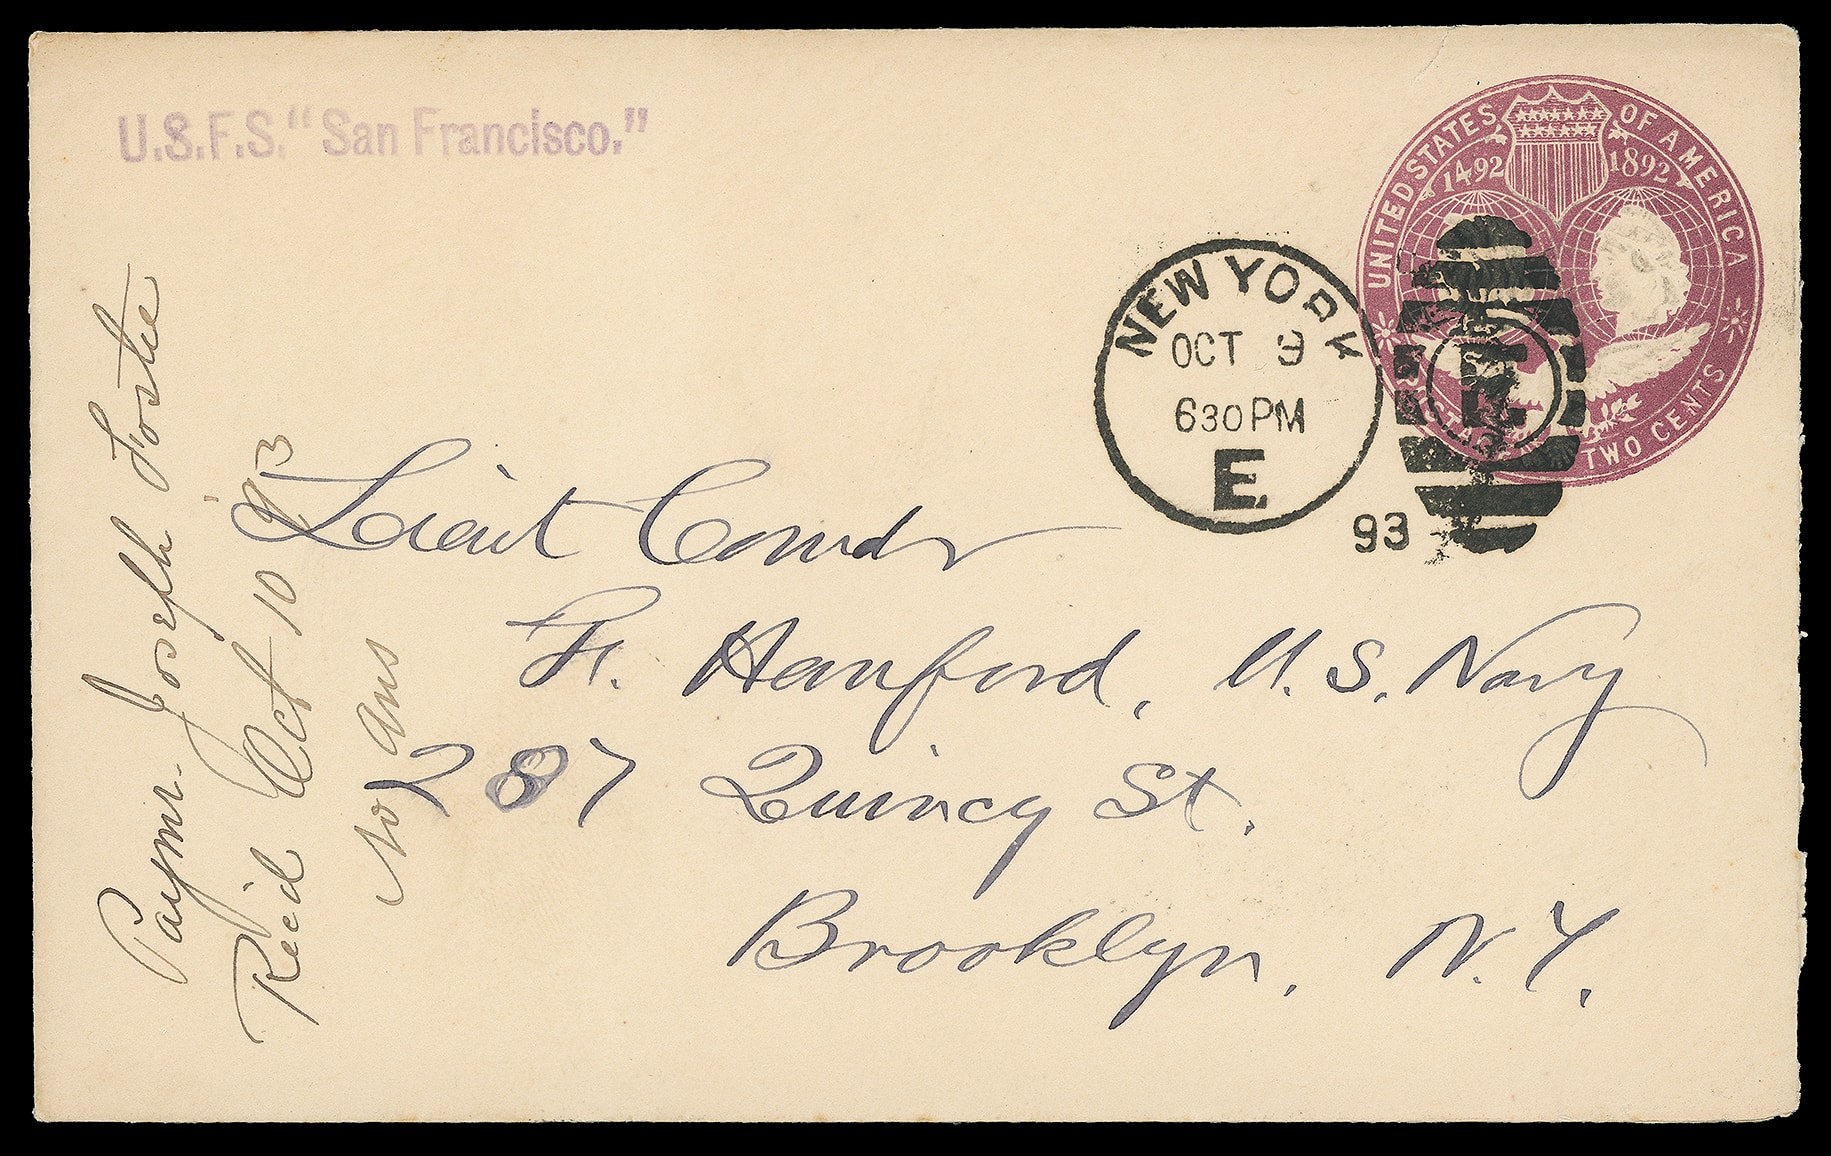 U.S.F.S. "San Francisco."
UNITED STATES OF AMERICA
1492 1892
TWO CENTS
NEW YORK
OCT 9
630PM
E
93
E
Lieut Comdr
F. Hanford, U.S. Navy
287 Quincy St.
Brooklyn, N.Y.
Paymr. Joseph Foster
Rec'd Oct 10 93
No Ans